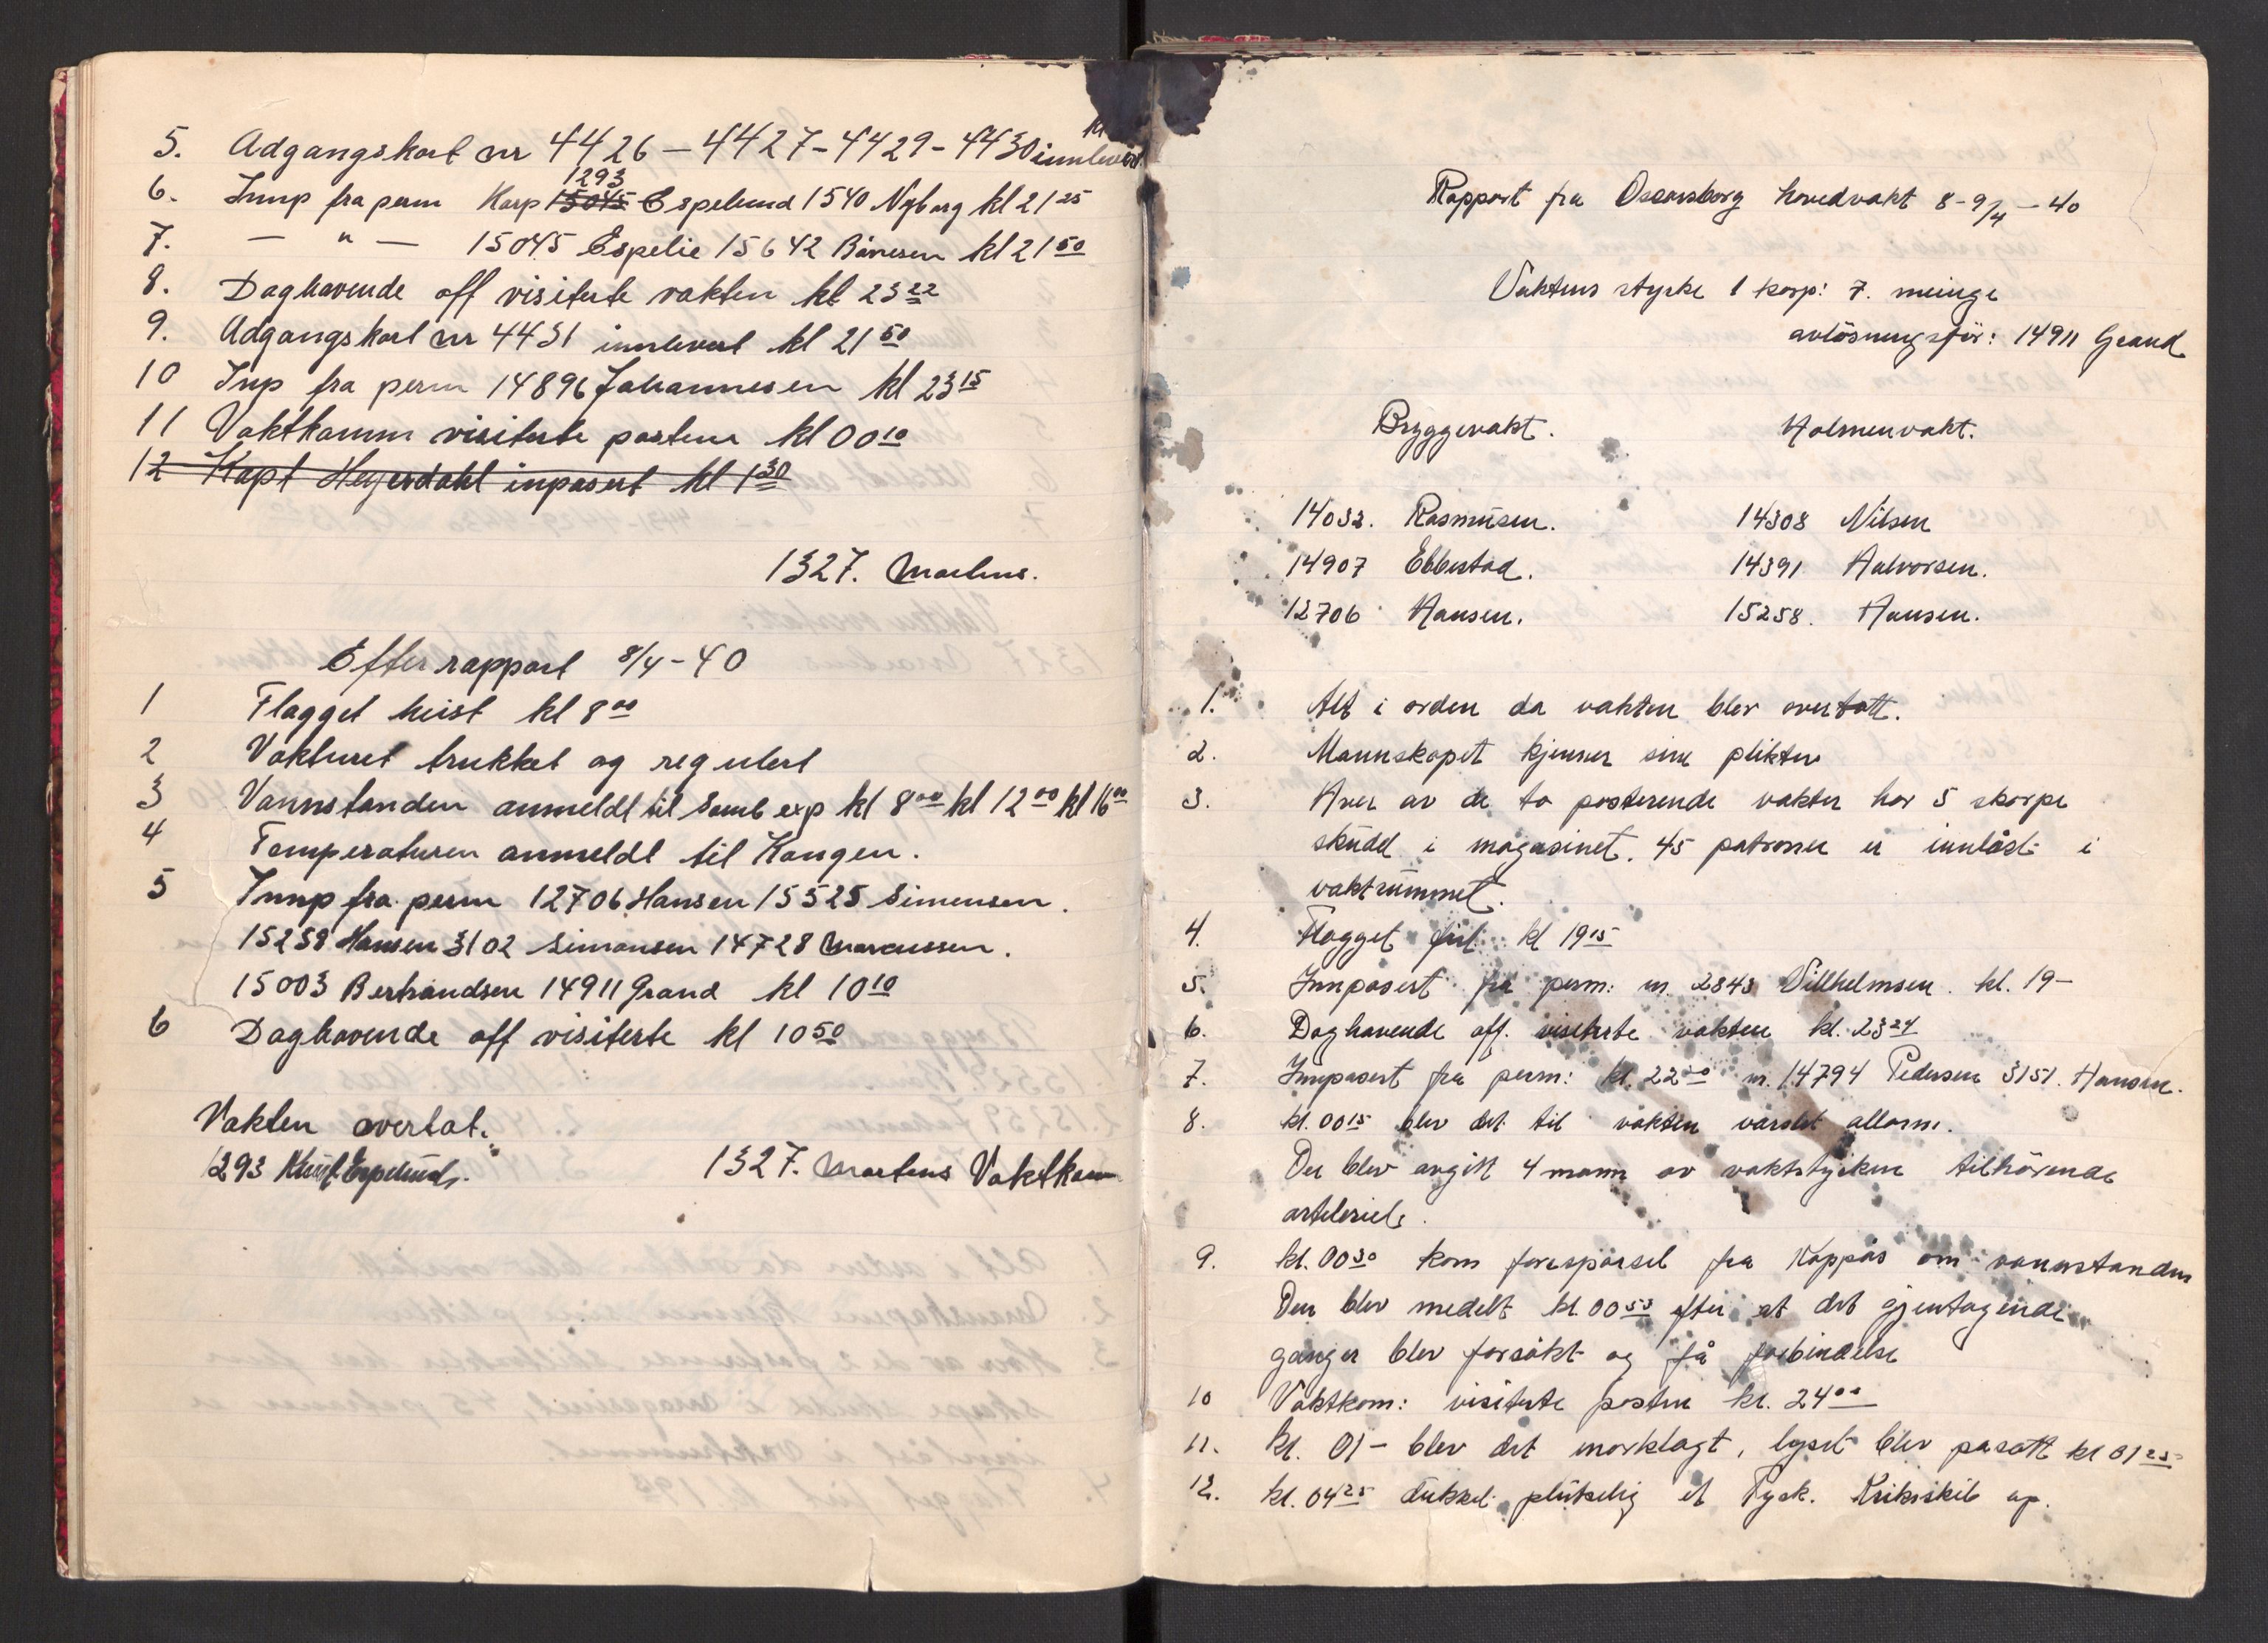 5. Adgangskort nr 4426 – 4427 – 4429 – 4430 innlevert kl
6. Innp fra perm Korp 1293 15045 Espelund 1540 Nyborg kl 21 25
7. — " — 15045 Espelie 15642 kl 21 50
8. Daghavende off visiterte vakten kl 23 22
9. Adgangskort nr 4431 innlevert kl 21 50
10 Inp fra perm 14896 Johannesen kl 23 15
11 Vaktkomm visiterte postene kl 00 10
12 Kapt Heyerdahl inpasert kl 1 30
1327. Martens.
Efterrapport 8/4 – 40
1 Flagget heist kl 8 00
2 Vakturet trukket og regulert
3 Vannstanden anmeldt til Samb exp kl 8 00 kl 12 00 kl 16 00
4 Temperaturen anmeldt til Kongen.
5 Innp fra perm 12706 Hansen 15525 Simensen.
15258 Hansen 3102 Simonsen 14728 Marcussen.
15003 Bertrandsen 14911 Grand kl 10 10
6 Daghavende off visiterte kl 10 50
Vakten overtat.
1293 Espelund.
1327. Martens Vaktkom
Rapport fra Oscarsborg hovedvakt 8-9/4 – 40
Vaktens styrke 1 korp: 7. meinge
avlösningsför: 14911 Grand
Bryggevakt. Holmenvakt.
14032. Rasmusen. 14308 Nilsen
14907 Ebbestad. 14391 Halvorsen.
12706 Hansen. 15258. Hansen.
1. Alt i orden da vakten blev overtatt.
2. Mannskapet kjenner sine plikter
3. Hver av de to posterende vakter har 5 skarpe
skudd i magasinet. 45 patroner er innlåst i
vaktrummet.
4. Flagget firt kl 19 15
5. Innpasert fra perm: nr. 2843 Villhelmsen. kl. 19–
6. Daghavende off. visiterte vakten kl. 23 24
7. Innpasert fra perm: kl. 22 20 nr. 14794 Pedersen 3151. Hansen.
8. kl. 00 15 blev det til vakten varslet allarm.
Der blev avgitt 4 mann av vaktstyrken tilhörende
arteleriet.
9. kl. 00 30 kom foresporsel fra Koppås om vannstanden
Den blev medelt kl. 00 53 efter at det gjentagende
ganger blev forsökt og få forbindelse
10 Vaktkom: visiterte posten kr. 24 00
11. Kl. 01 – blev det morklagt, lyset blev pasatt kl 01 25
12. kl. 04 25 dukket plutselig et Tysk. Kriksskib op.